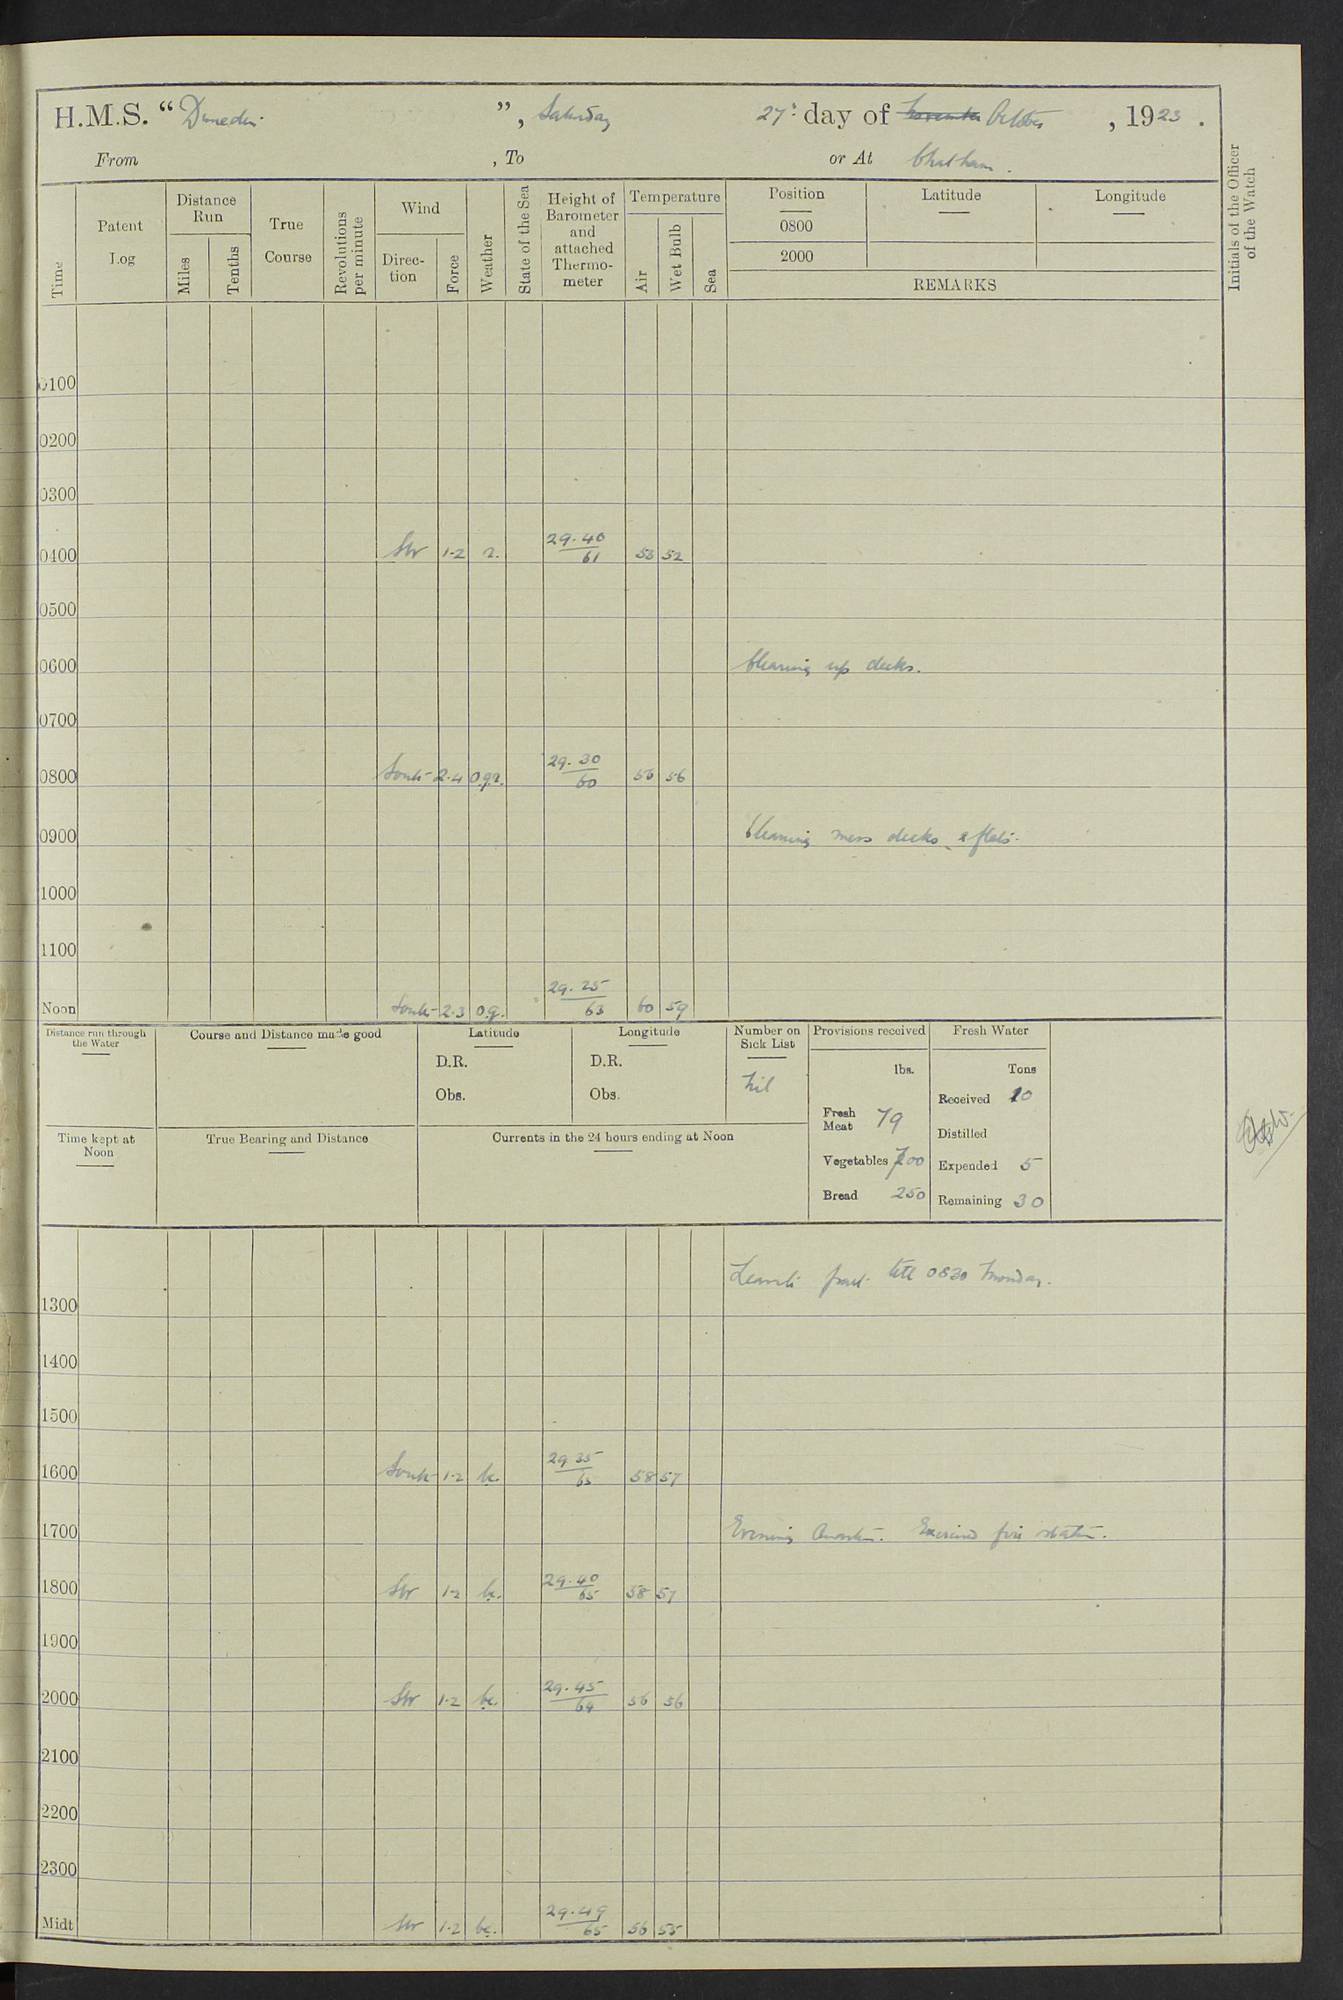 H.M.S. “Dunedin ”, Saturday 27th day of November October , 1923 .
From , To or At Chatham.
Time
Patent Log
Distance Run
Miles
Tenths
True Course
Revolutions per minute
Wind
Direc-tion
Force
Weather
State of the Sea
Height of Barometer and attached Thermo-meter
Temperature
Air
Wet Bulb
Sea
Position
0800
2000
Latitude
Longitude
REMARKS
Initials of the Officer of the Watch
0100
0200
0300
0400 SW 1-2 r. 29.40/61 53 52
0500
0600 Clearing up decks.
0700
0800 South 2-4 o.g.r. 29.30/60 56 56
0900 Cleaning mess decks & flats.
1000
1100
Noon South 2-3 o.g. 29.25/63 60 59
Distance run through the Water
Course and Distance made good
Latitude
D.R.
Obs.
Longitude
D.R.
Obs.
Number on Sick List
Nil
Provisions received
lbs.
Fresh Meat 79
Vegetables 700
Bread 250
Fresh Water
Tons
Received 10
Distilled
Expended 5
Remaining 30
Time kept at Noon
True Bearing and Distance
Currents in the 24 hours ending at Noon
Leave to till 0830 Monday.
1300
1400
1500
1600 South 1-2 bc. 29.35/65 58 57
1700 Evening Quarters. Exercised fire stations.
1800 SW 1-2 bc. 29.40/65 58 57
1900
2000 SW 1-2 bc. 29.45/64 56 56
2100
2200
2300
Midt SW 1-2 bc. 29.49/65 56 55